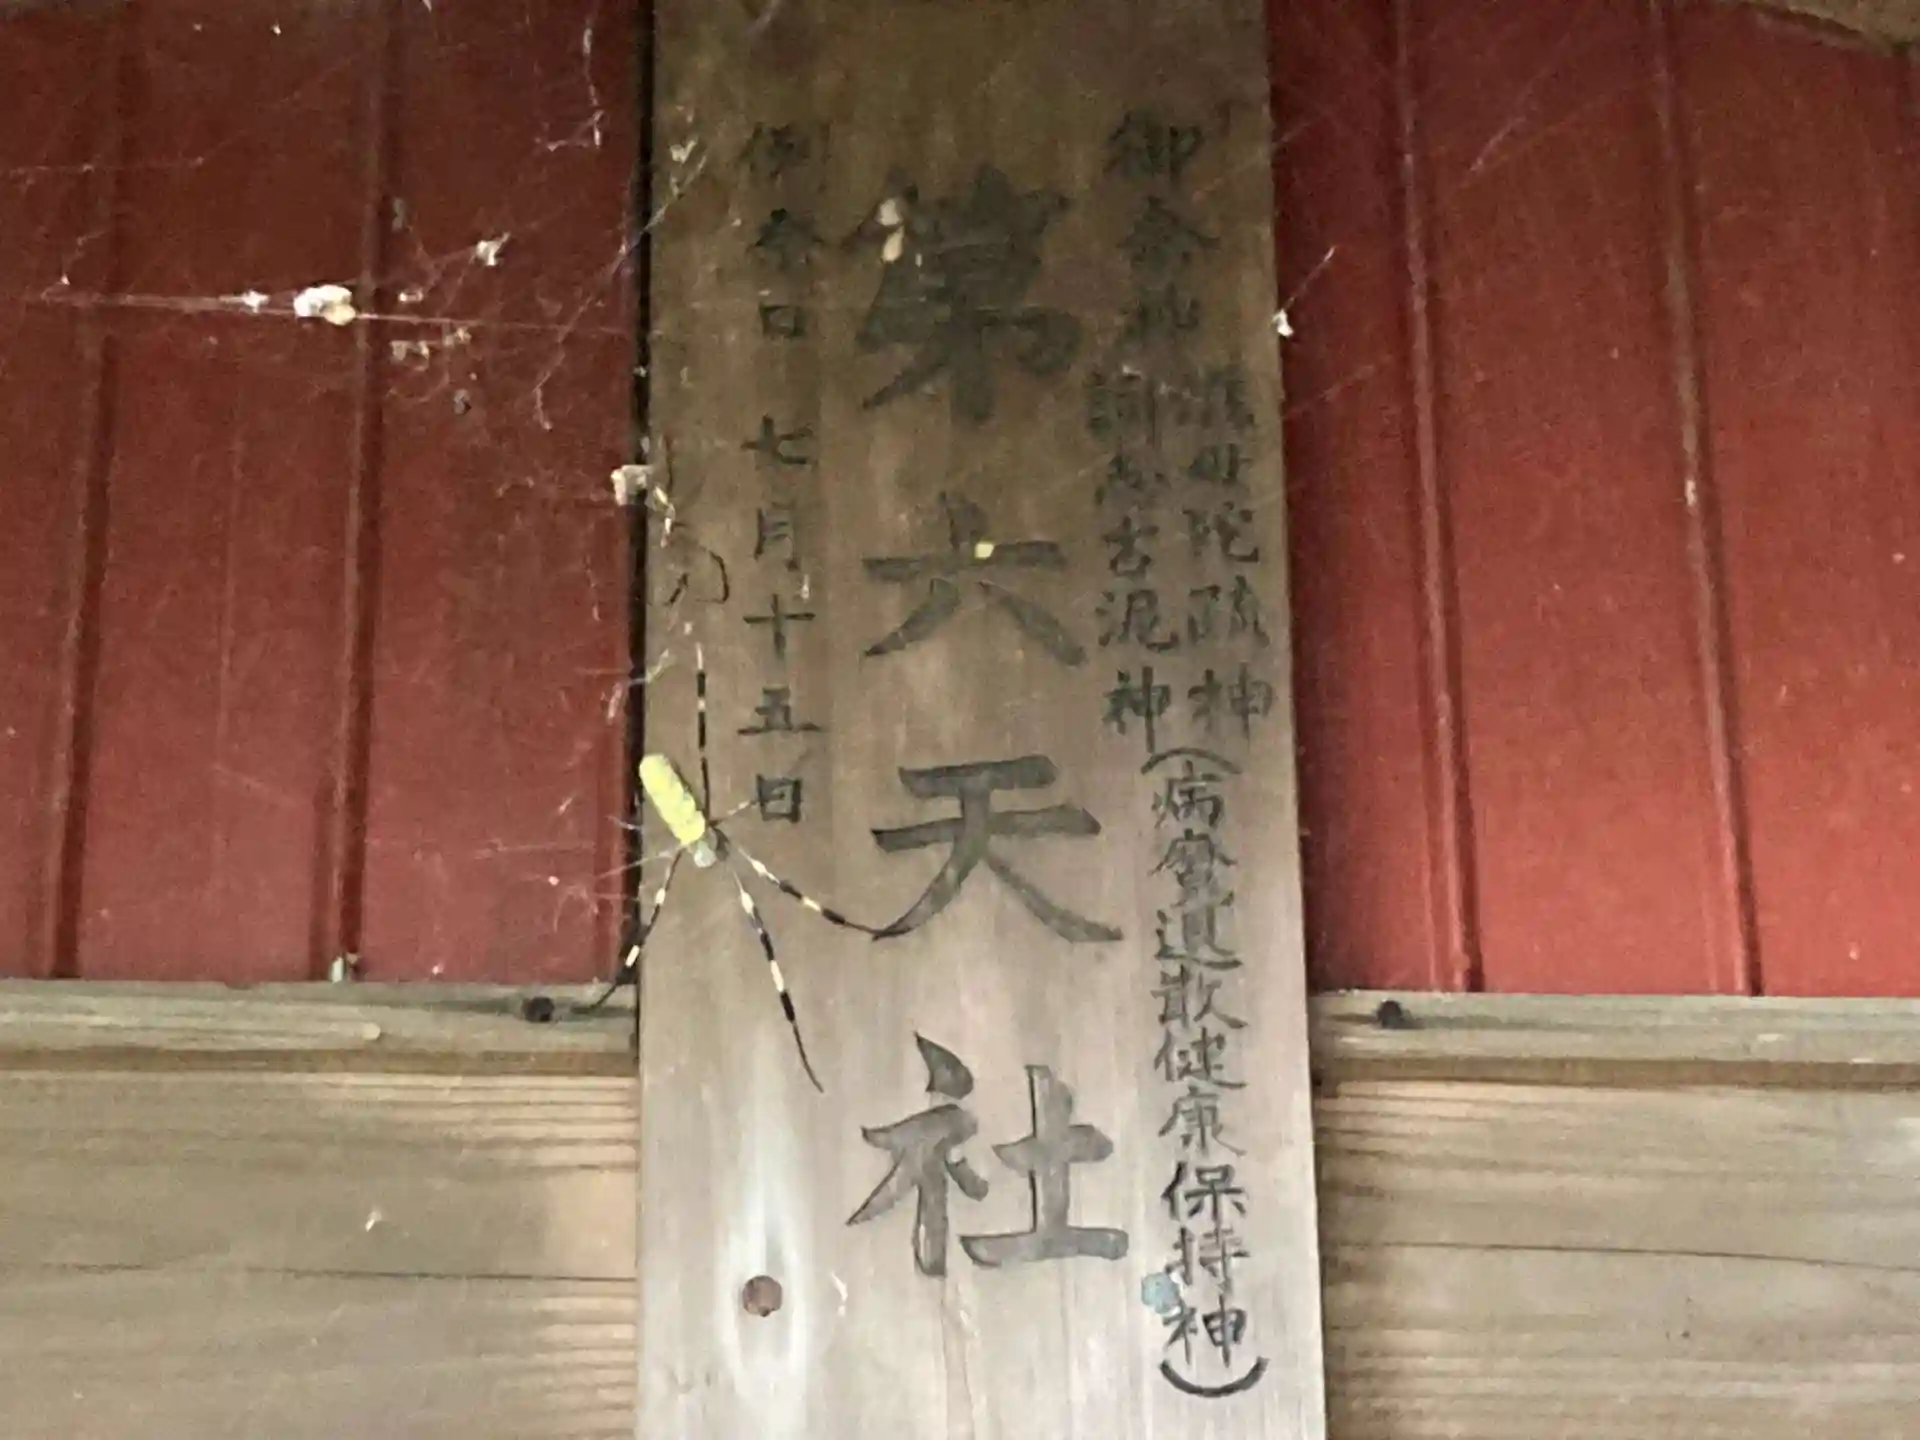 御祭神
淤母陀琉神
訶志古泥神
(病魔退散健康保持神)
第六天社
例祭日 七月十五日